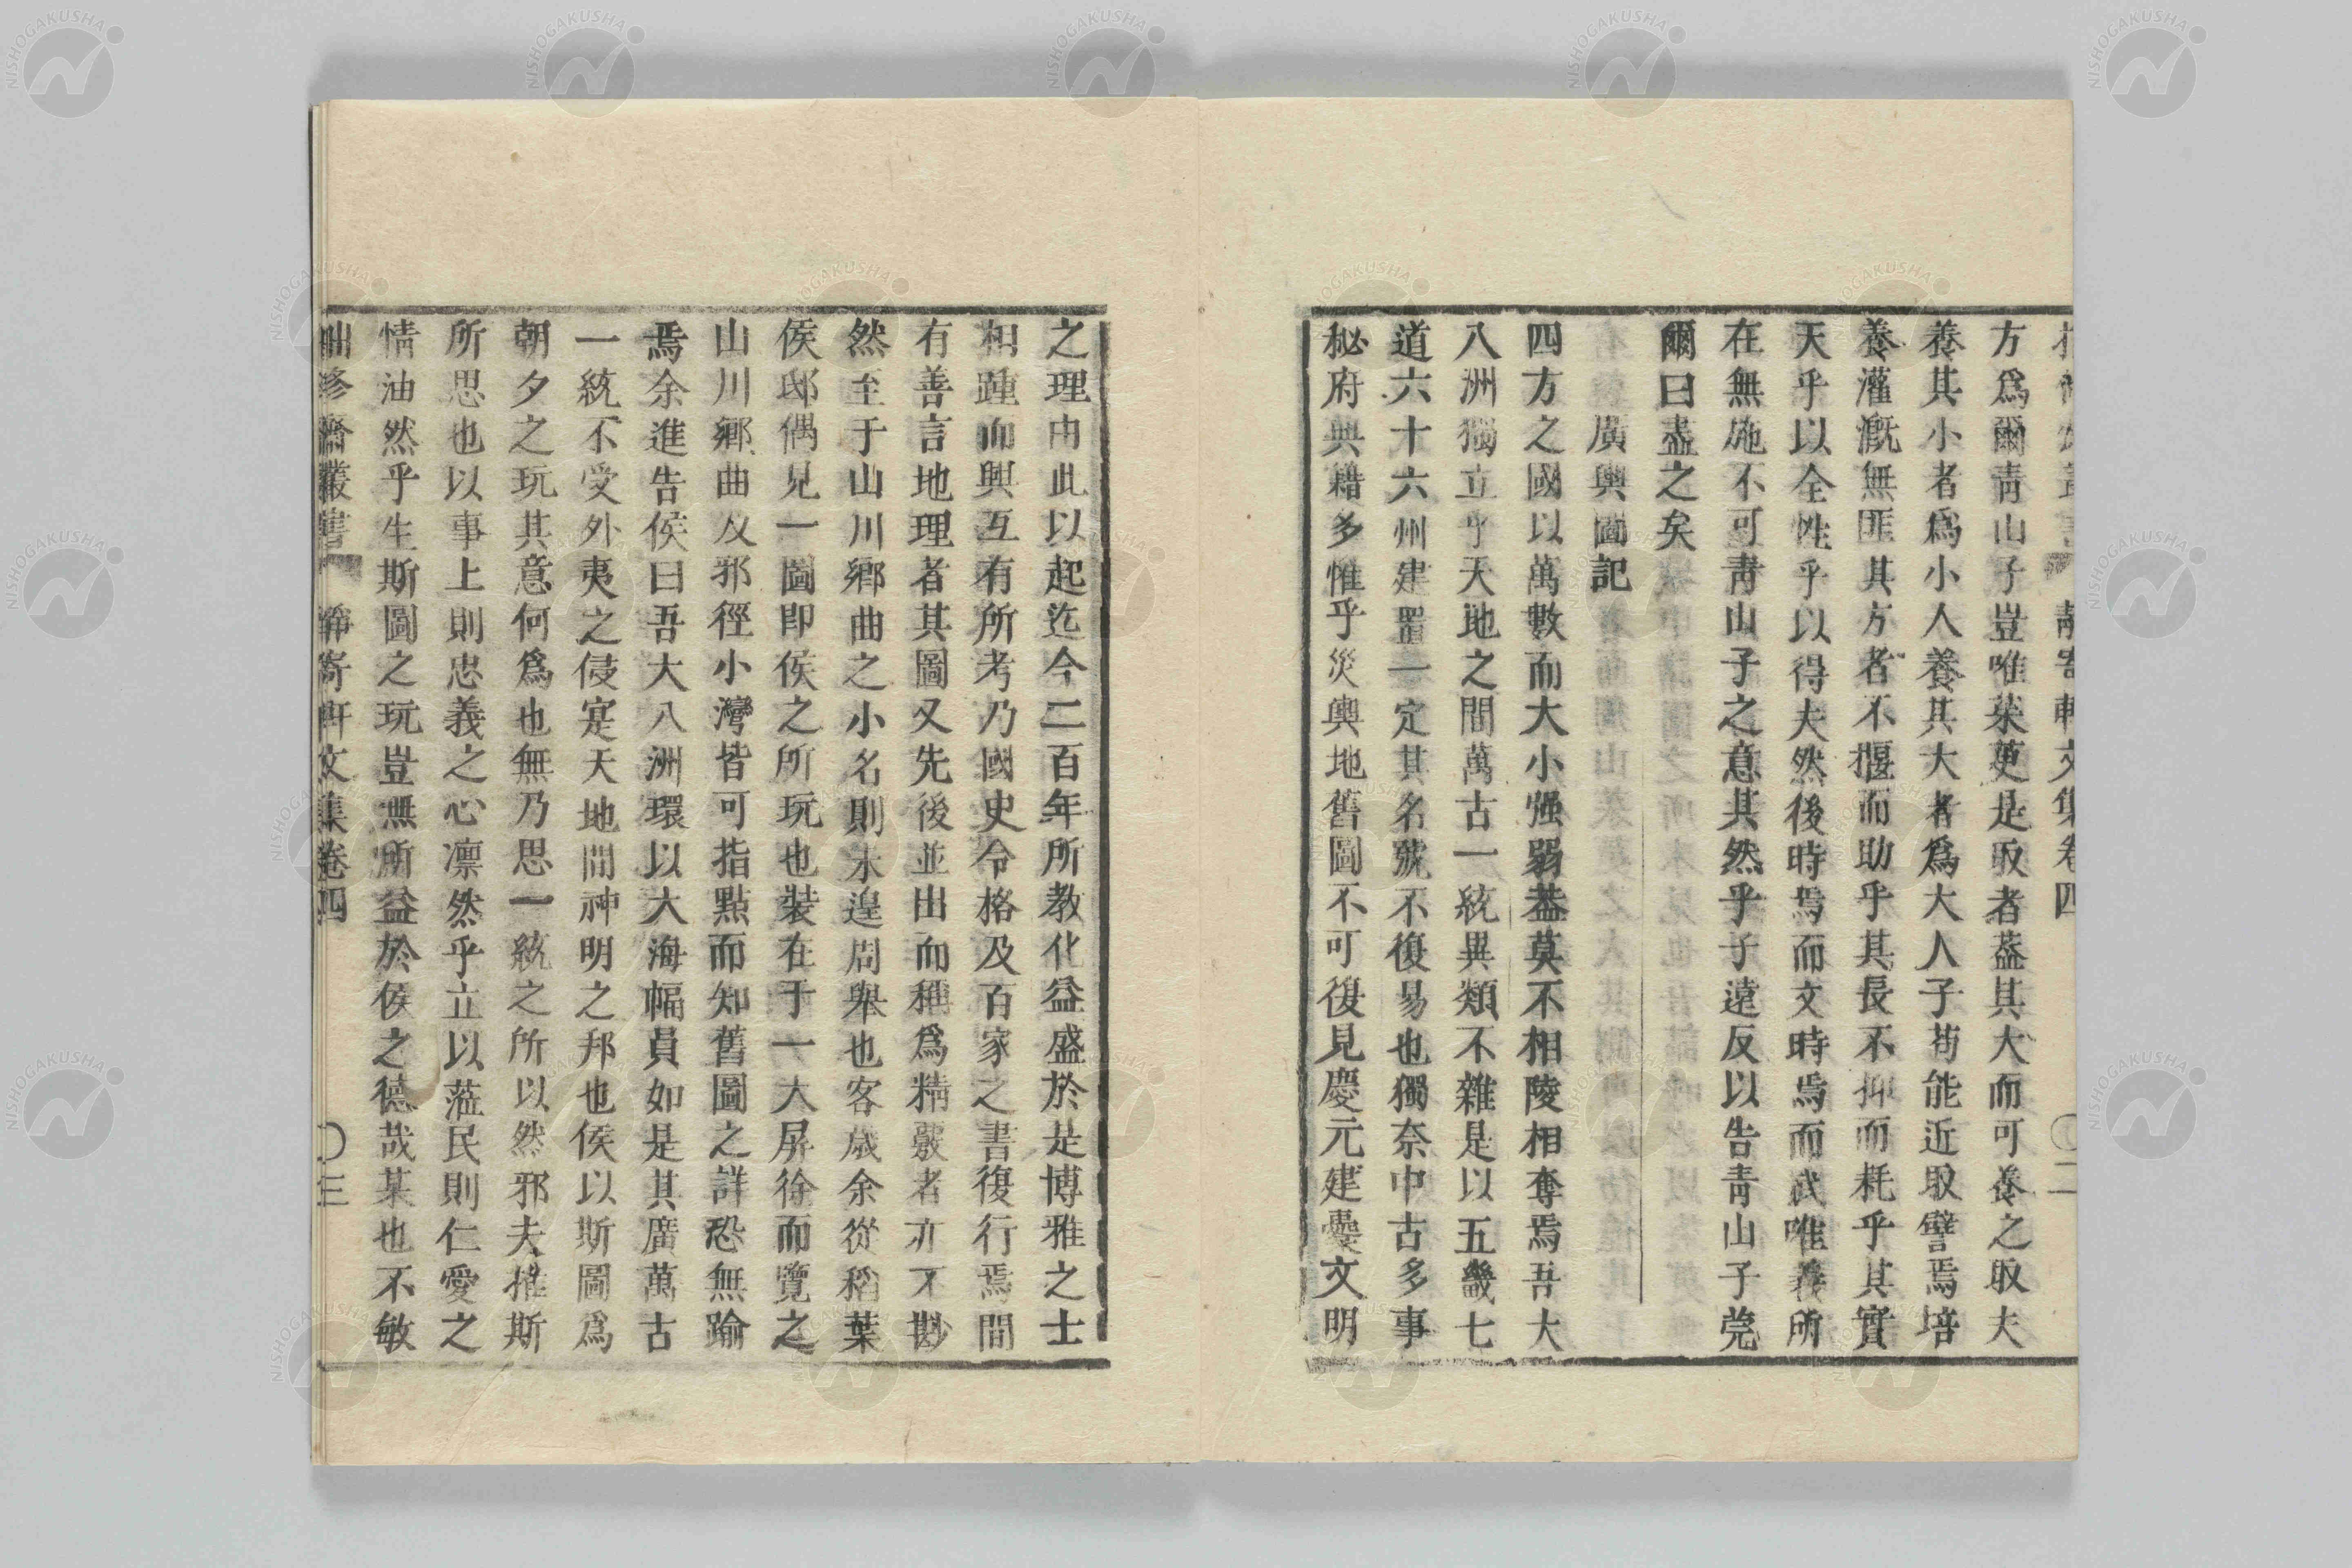 方爲爾靑山子豈唯茱萸是取者葢其大而可養之取夫
養其小者爲小人養其大者爲大人子苟能近取譬焉培
養灌漑無匪其方者不揠而助乎其長不抑而耗乎其實
天乎以全性乎以得夫然後時焉而文時焉而武唯義所
在無施不可靑山子之意其然乎子遠反以告靑山子莞
爾曰盡之矣
廣輿圖記
四方之國以萬數而大小强弱葢莫不相陵相奪焉吾大
八洲獨立乎天地之間萬古一統異類不雜是以五畿七
道六十六州建置一定其名號不復易也獨奈中古多事
秘府典籍多惟乎災輿地舊圖不可復見慶元建櫜文明
之理由此以起迄今二百年所敎化益盛於是博雅之士
相踵而興互有所考乃國史令格及百家之書復行焉間
有善言地理者其圖又先後並出而稱爲精覈者亦不尠
然至于山川鄕曲之小名則未遑周舉也客歲余從稻葉
侯邸偶見一圖卽侯之所玩也裝在于一大屛徐而覽之
山川鄕曲及邪徑小灣皆可指點而知舊圖之詳恐無踰
焉余進告侯曰吾大八洲環以大海幅員如是其廣萬古
一統不受外夷之侵寔天地間神明之邦也侯以斯圖爲
朝夕之玩其意何爲也無乃思一統之所以然邪夫推斯
所思也以事上則忠義之心凛然乎立以蒞民則仁愛之
情油然乎生斯圖之玩豈無所益於侯之德哉某也不敏
文集卷四
〇三
NISHOGAKUSHA